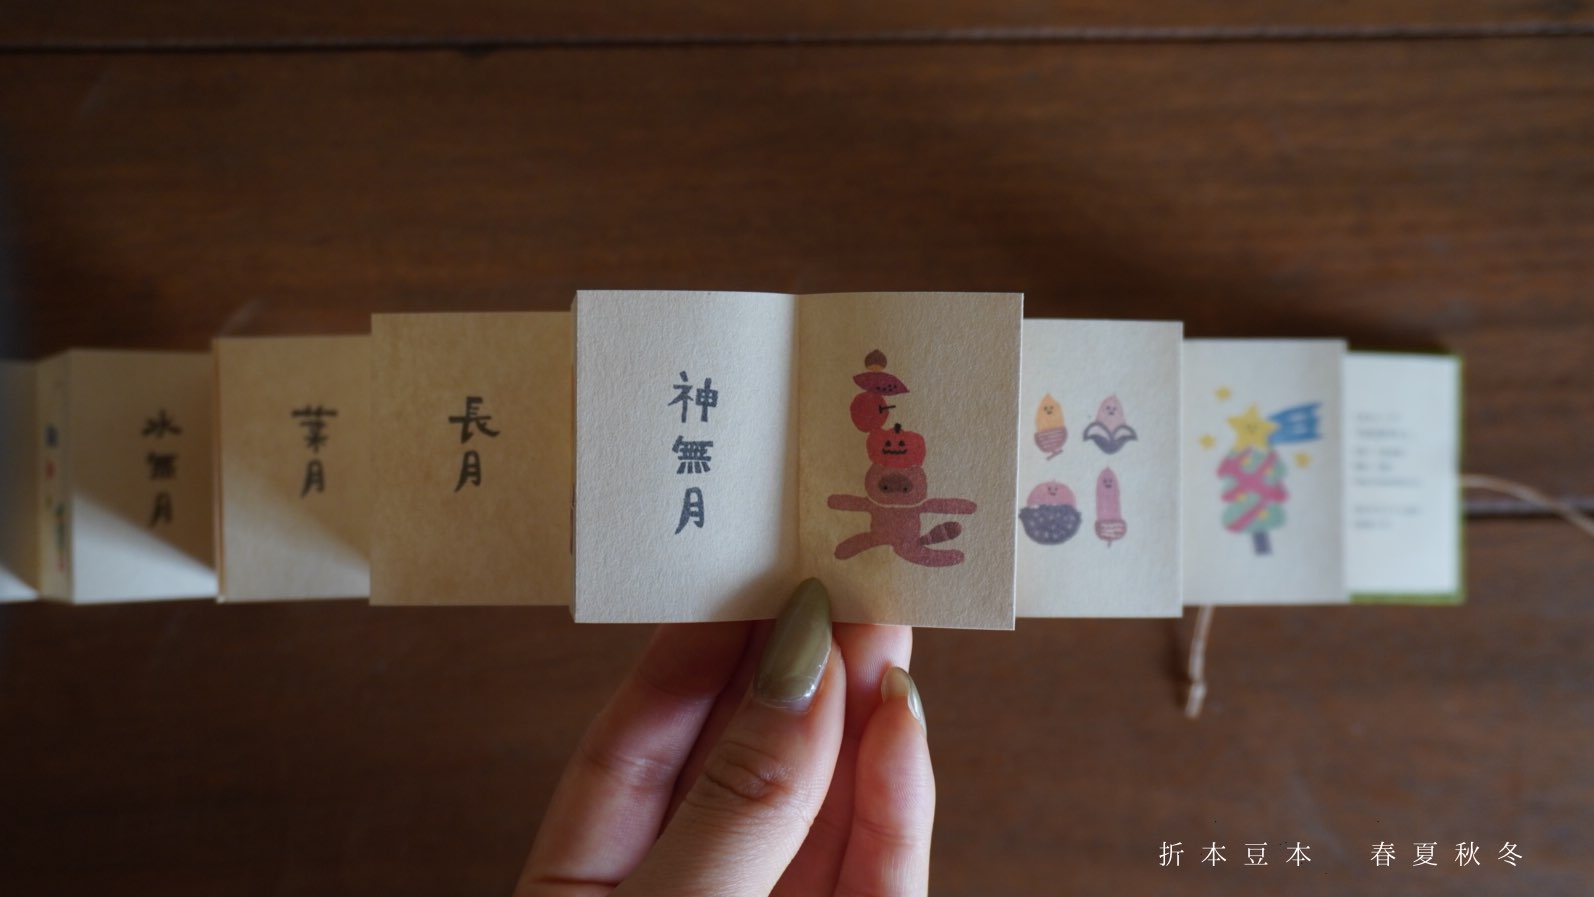 水無月
葉月
長月
神無月
折本豆本 春夏秋冬